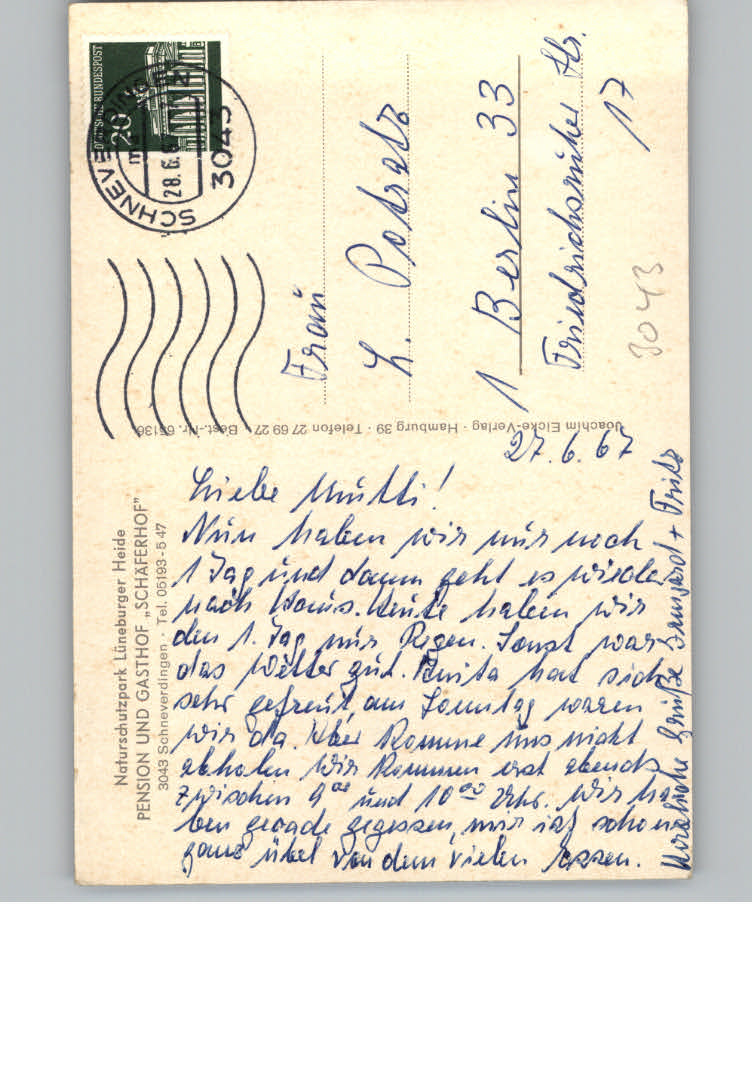 Naturschutzpark Lüneburger Heide
PENSION UND GASTHOF „SCHÄFERHOF"
3043 Schneverdingen · Tel. 05193-547
27.6.67
Liebe Mutti!
Nun haben wir nur noch
1 Tag und dann geht es wieder
nach Haus. Heute haben wir
den 1. Tag nur Regen. Sonst war
das Wetter gut. Anita hat sich
sehr gefreut, am Sonntag waren
wir da. Aber komme uns nicht
abholen wir kommen erst abends
zwischen 9 00 und 10 00 Uhr. Wir ha-
ben gerade gegessen, mir ist schon
ganz übel von dem vielen Essen.
Herzliche Grüße + Fritz
Joachim Eicke-Verlag · Hamburg 39 · Telefon 27 69 27 · Best.-Nr. 65136
DEUTSCHE BUNDESPOST
20
SCHNEVERDINGEN
28.6.
3043
Frau
L. Potratz
1 Berlin 33
Friedrichsruher Str.
17
3043